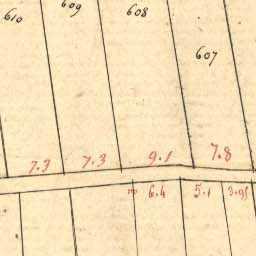 610 609 608
607
7.3 7.3 9.1 7.8
6.4 5.1 3.95